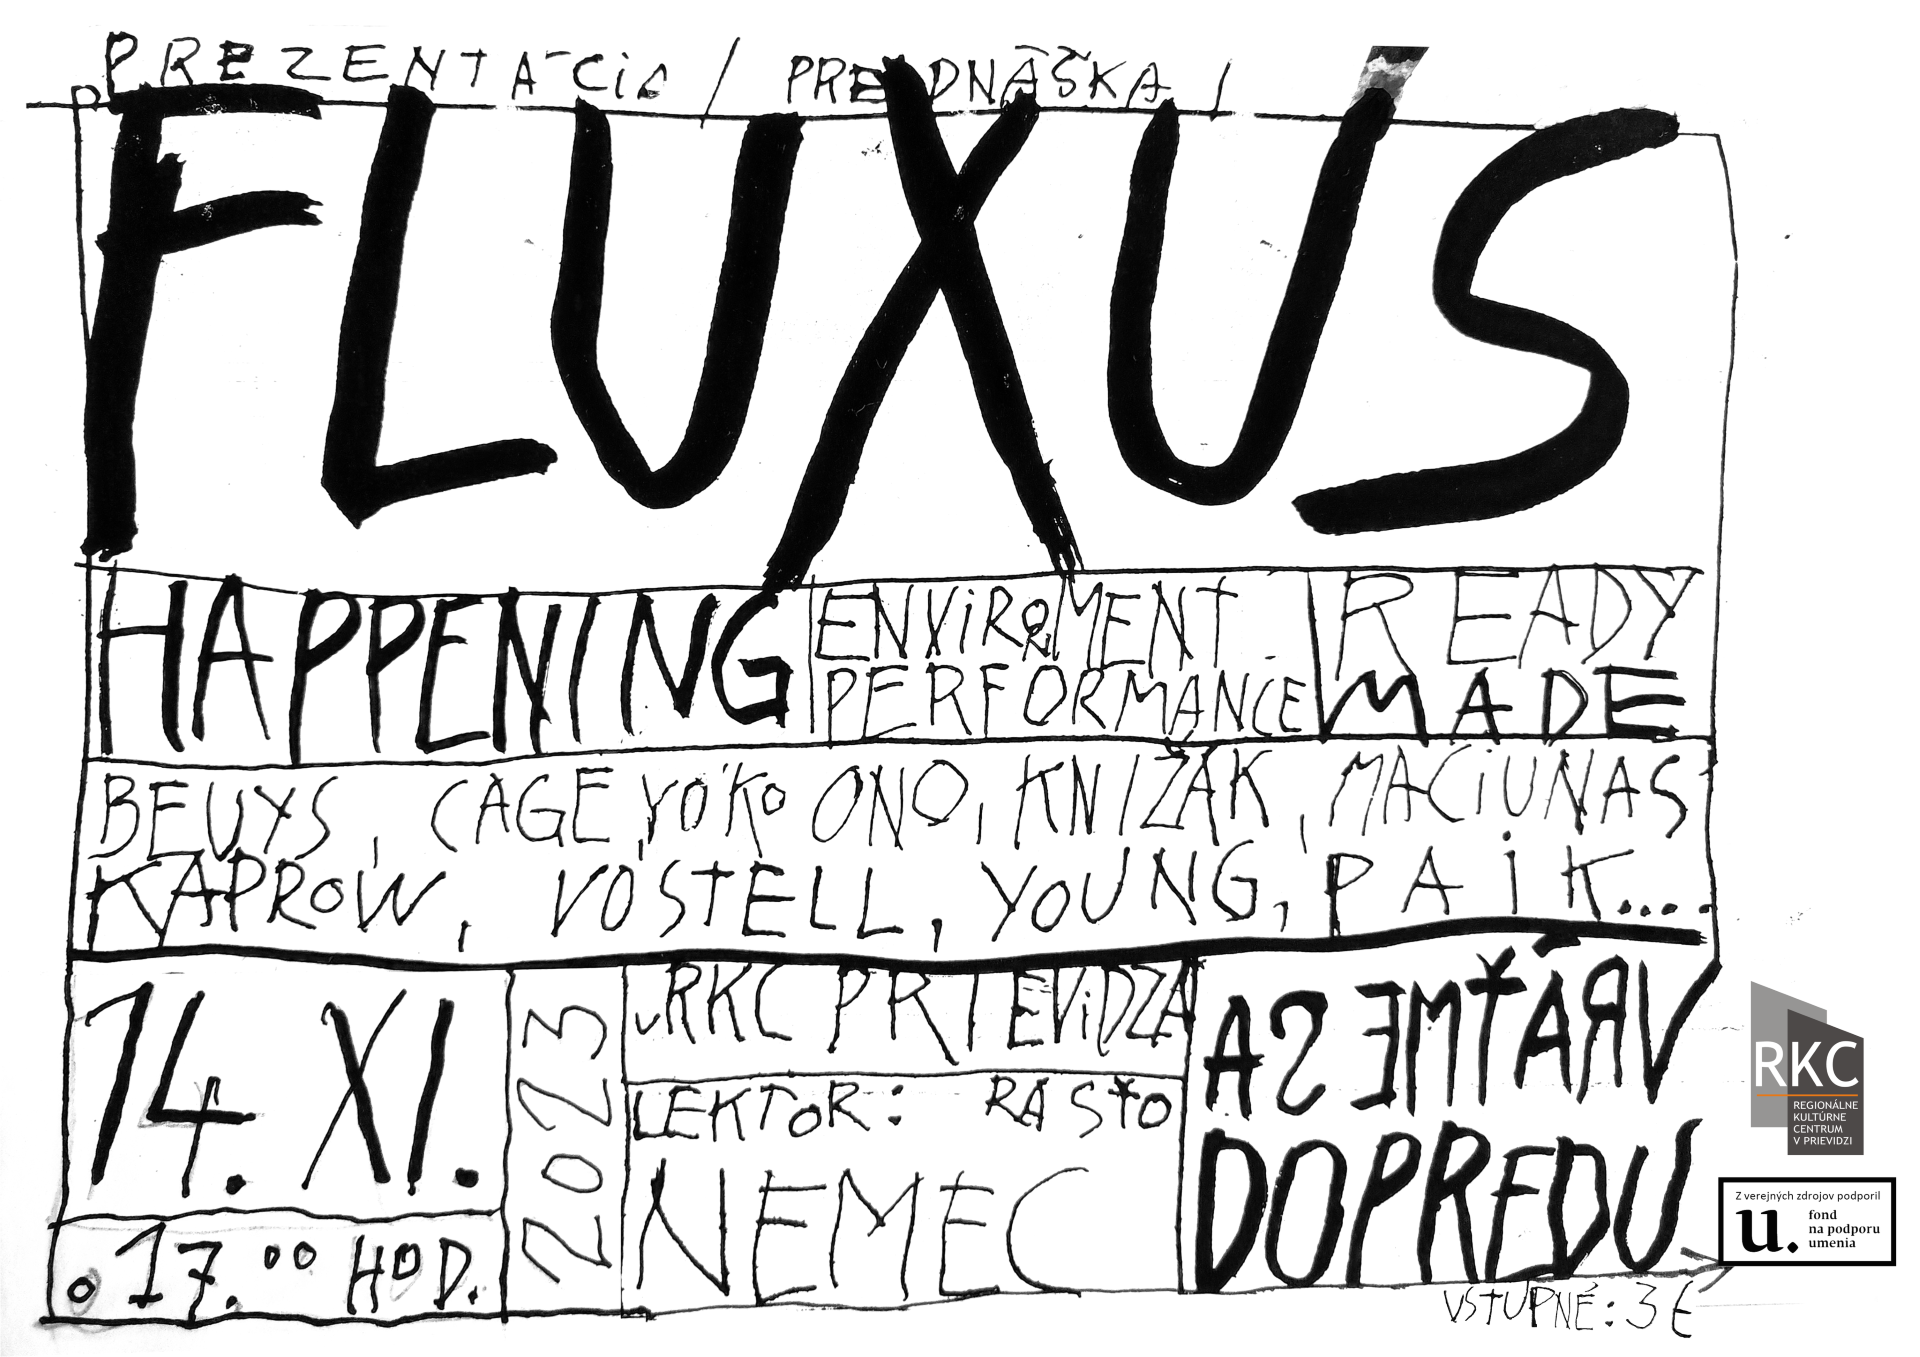 PREZENTÁCIA / PREDNÁŠKA /
FLUXUS
HAPPENING
ENVIRONMENT
PERFORMANCE
READY
MADE
BEUYS, CAGE, YOKO ONO, KNIŽÁK, MACIUNAS
KAPROW, VOSTELL, YOUNG, PAIK....
14. XI.
o 17.00 HOD.
2023
v RKC PRIEVIDZA
LEKTOR: RASŤO
NEMEC
VRÁŤME SA
DOPREDU
VSTUPNÉ: 3€
RKC
REGIONÁLNE
KULTÚRNE
CENTRUM
V PRIEVIDZI
Z verejných zdrojov podporil
u. fond
na podporu
umenia